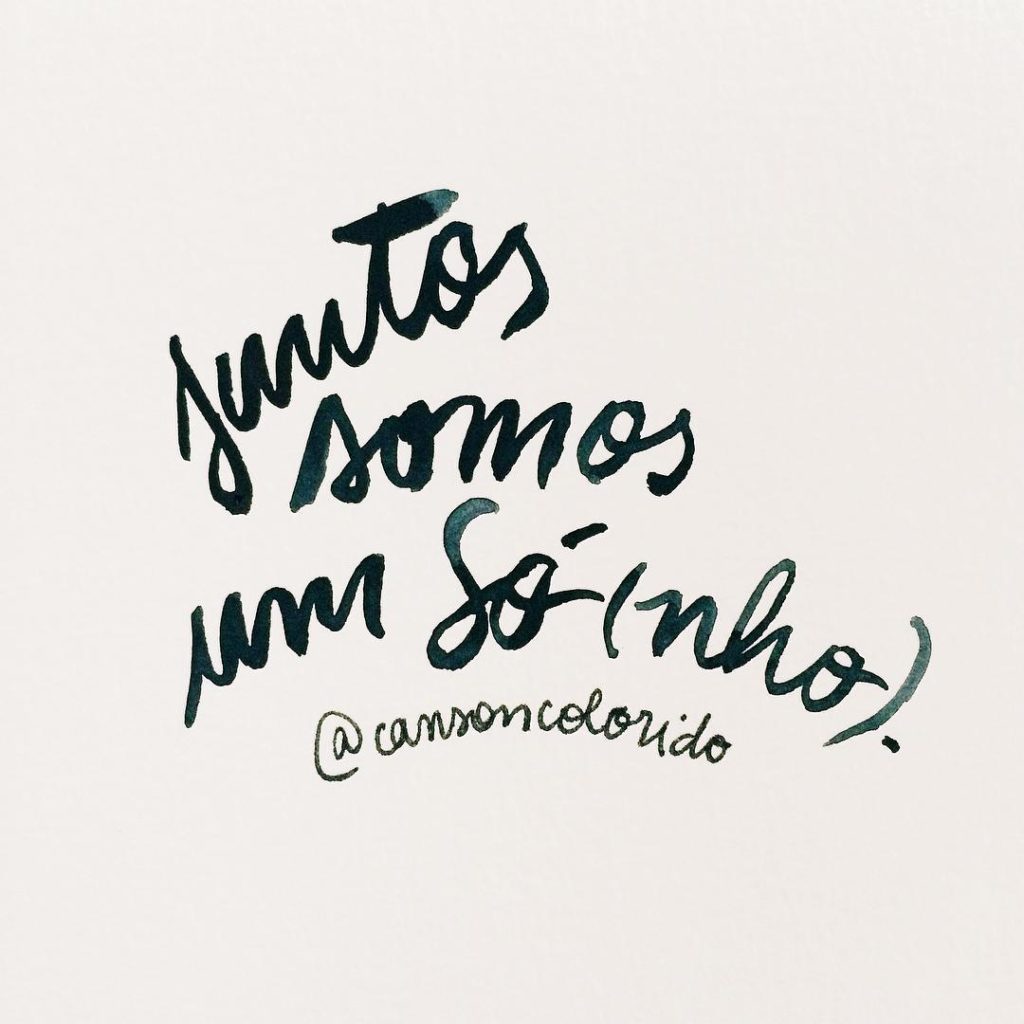 juntos
somos
um Só (nho).
@cansoncolorido